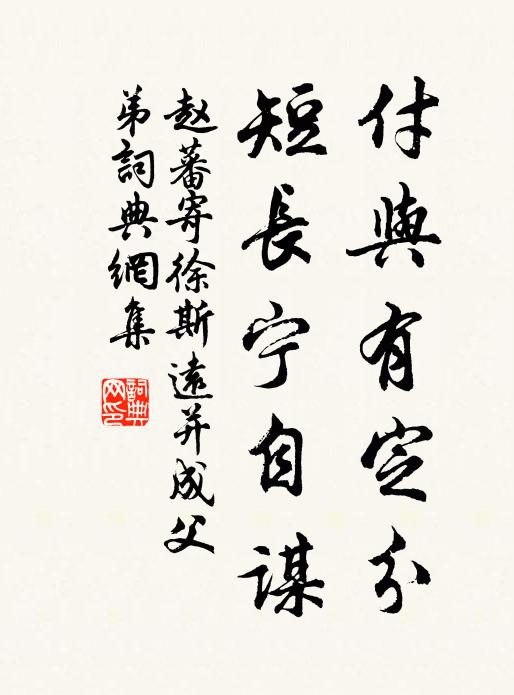 付與有定分
短長宁自謀
赵蕃寄徐斯遠并成父
弟詞典網集
詞典網印